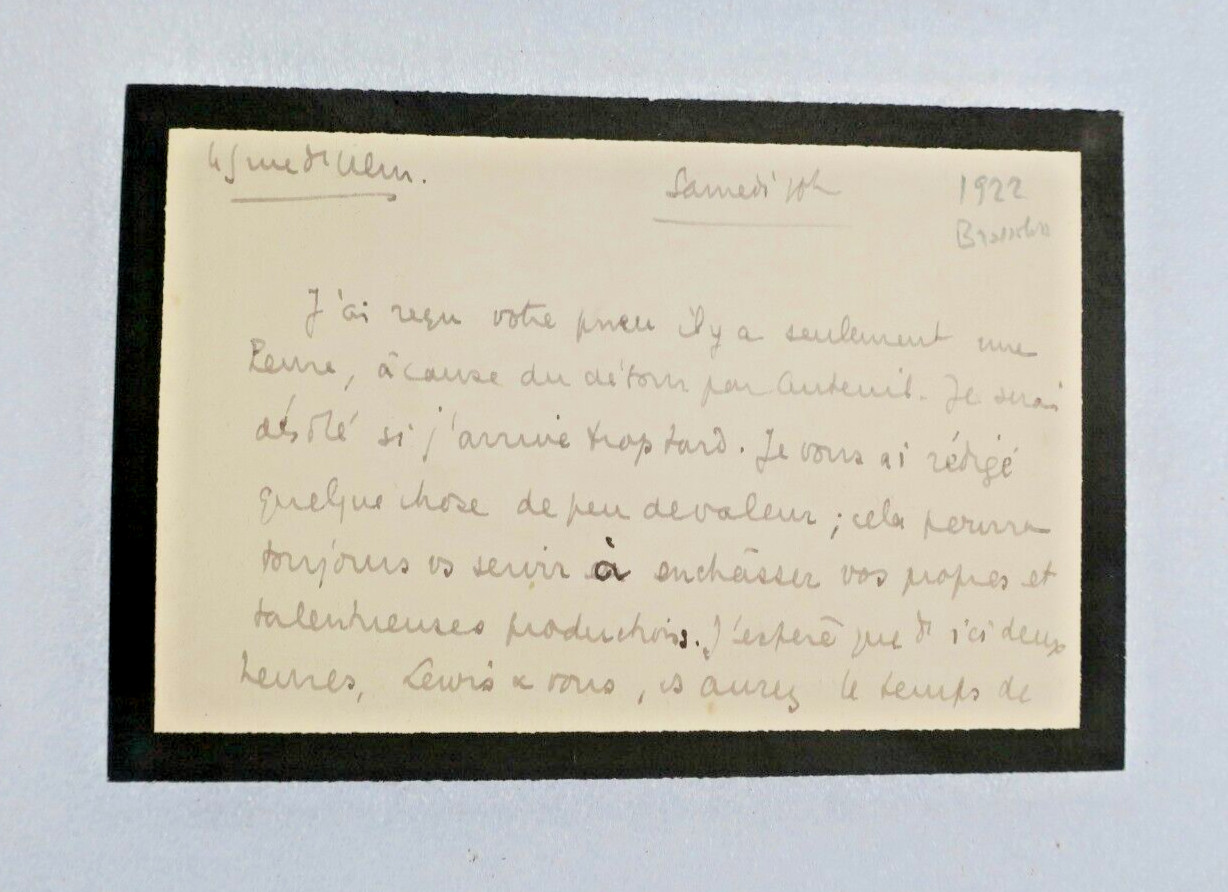 45 rue d'Ulm.
Samedi 20h
1922
J'ai reçu votre pneu il y a seulement une
heure, à cause du détour par Auteuil. Je serai
désolé si j'arrive trop tard. Je vous ai rédigé
quelque chose de peu de valeur ; cela pourra
toujours vs servir à enchâsser vos propres et
talentueuses productions. J'espère que d'ici deux
heures, Lewis & vous, vs aurez le temps de